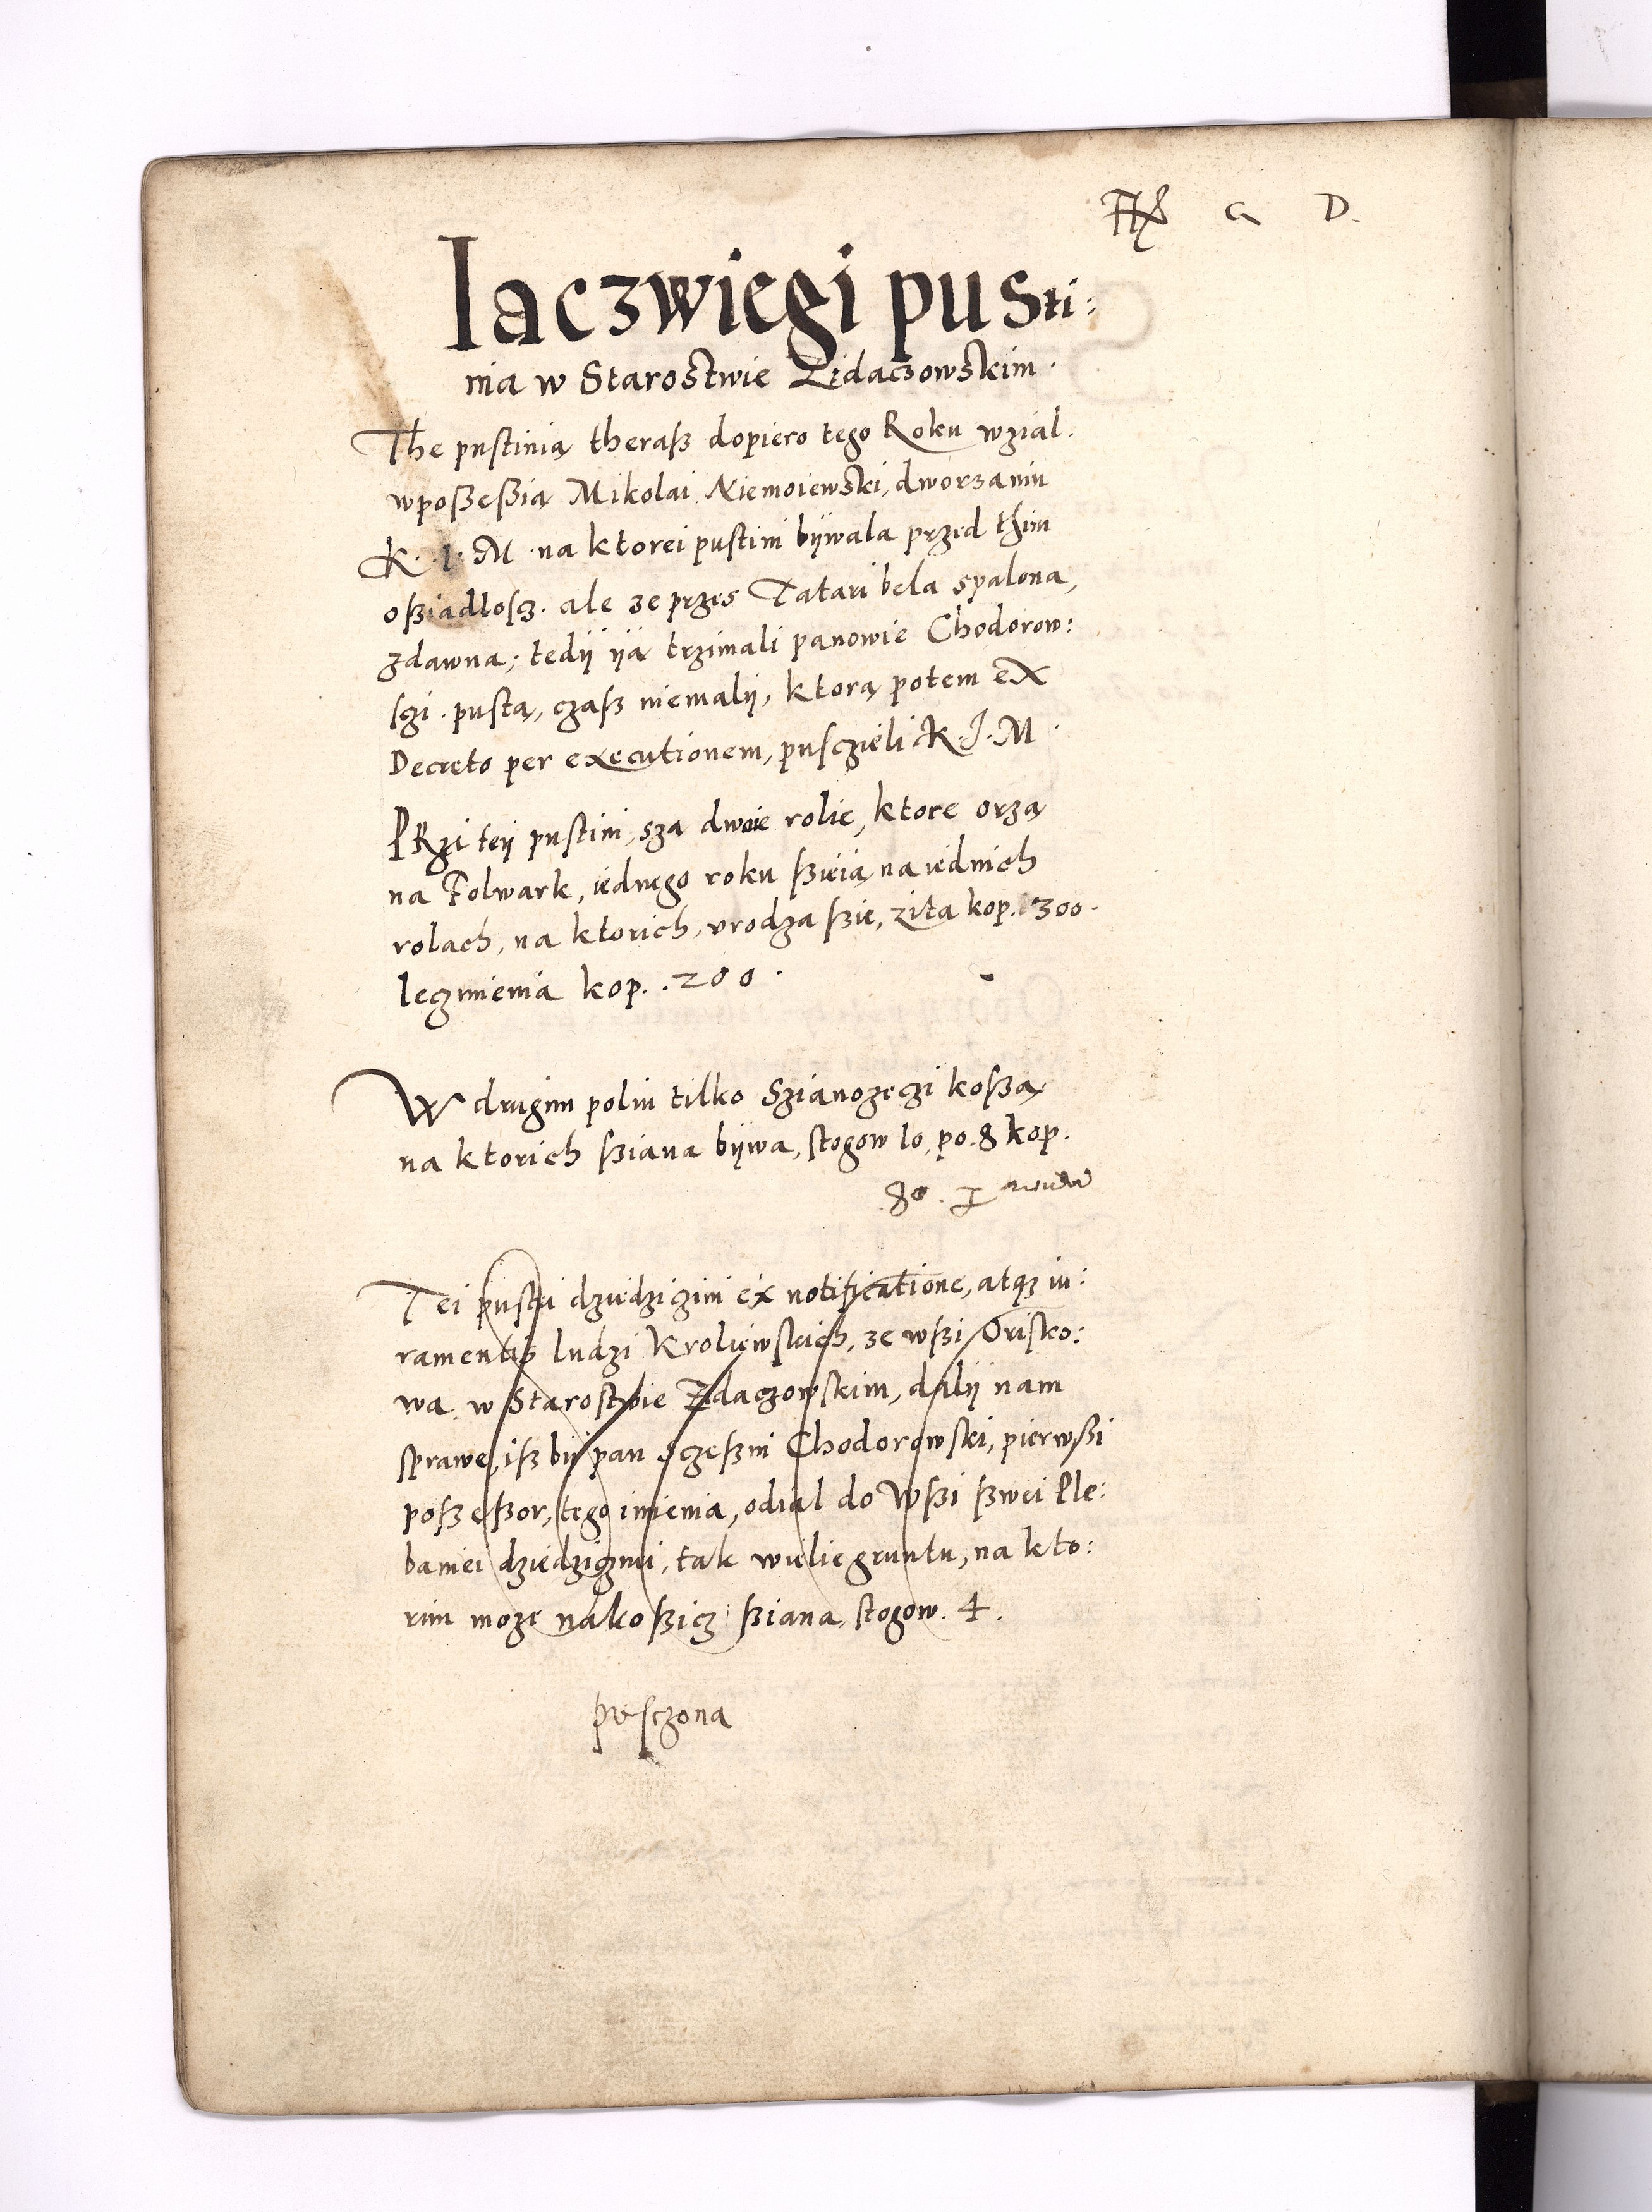 G D.
Iaczwięgi pusti:
nia w Starostwie Zidaczowskim.
The pustinią theraß dopiero tego Roku wzial.
wpoßeßią Mikolai Niemoiewski, dworzanin
K. I. M na ktorei pustini bÿwala przed thim
oßiadloscz. ale ze przes Tatari bela spalona,
zdawna; tedÿ ÿą trzimali panowie Chodorow:
sczi. pustą, czaß niemalÿ, ktorą potem ex
Decreto per executionem, pusczieli K. I. M
PRzi teÿ pustini, szą dwoie rolie, ktore orzą
na Folwark, iednego roku ßieią na iednich
rolach, na ktorich, vrodza ßie, zita kop. 300.
leczmienia kop. 200.
W drugim poliu tilko Szianozęczi koßą
na ktorich ßiana bÿwa, stogow 10, po. 8 kop.
80.
Tei pustini dziedziczini ex notificatione, atqz iu:
ramentis ludzi Kroliewskich, ze wßi Orisko:
wa. w Starostwie Zidaczowskim, dalÿ nam
sprawę, iß bÿ pan sczeßni Chodorowski, pierwßi
poßeßor, tego imienia, odial do Wßi ßwei Ple:
baniei dziedziczini, tak wielie gruntu, na kto:
rim moze nakoßicz ßiana, stogow. 4.
pusczona